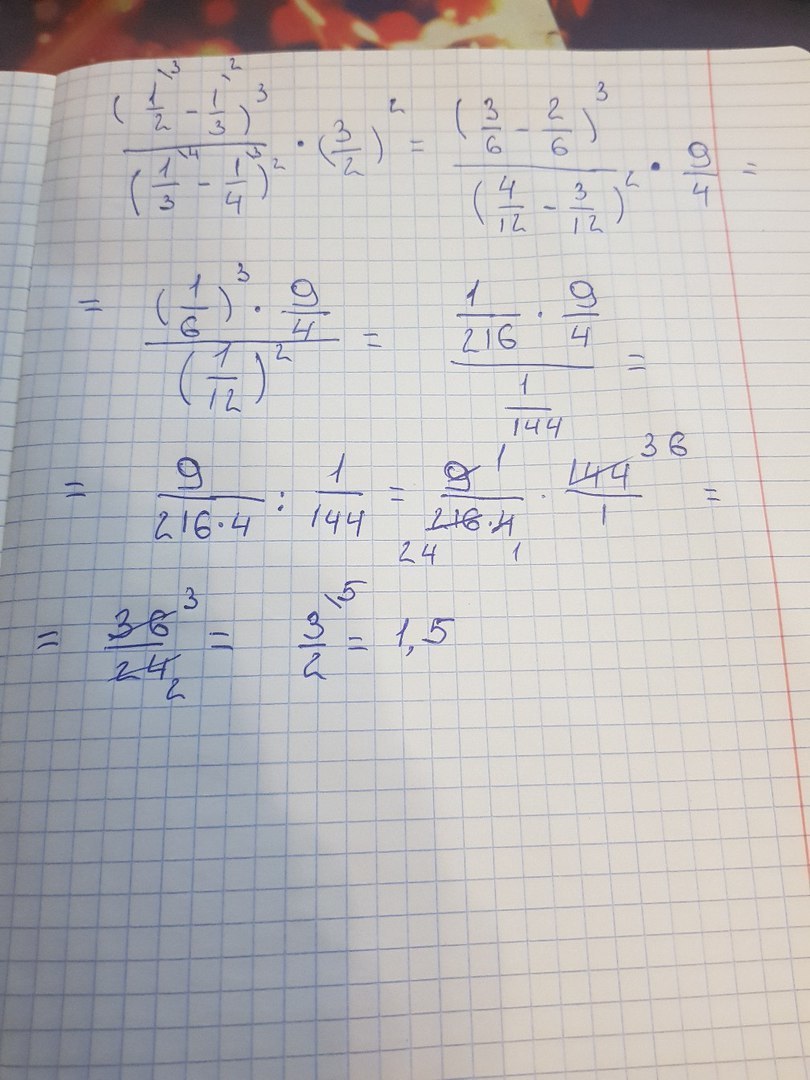 (1/2\3 - 1/3\2)^3 / (1/3\4 - 1/4\3)^2 · (3/2)^2 = (3/6 - 2/6)^3 / (4/12 - 3/12)^2 · 9/4 =
= (1/6)^3 · 9/4 / (1/12)^2 = 1/216 · 9/4 / 1/144 =
= 9/216·4 : 1/144 = 9 1/216·4 24 1 · 144 36/1 =
= 36 3/24 2 = 3/2\5 = 1,5